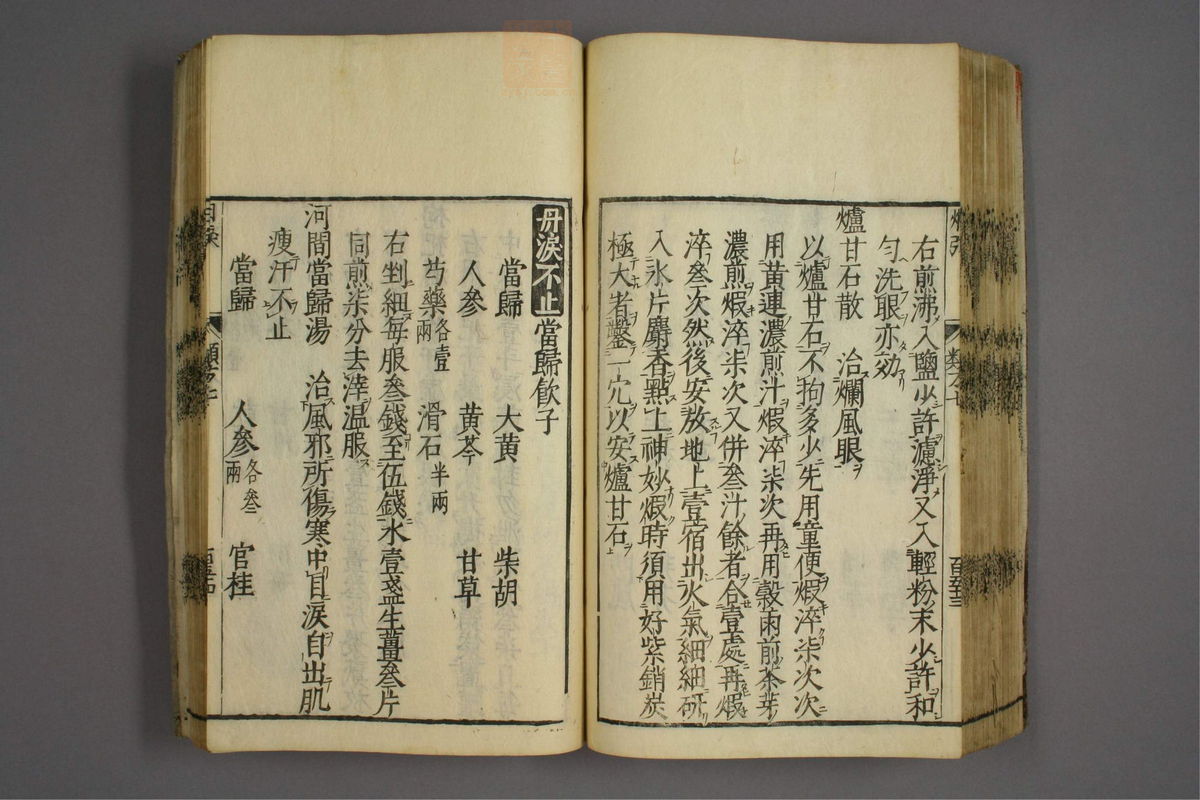 右煎沸入鹽少許濾淨又入輕粉末少許和
勻洗眼亦効
爐甘石散 治爛風眼
以爐甘石不拘多少先用童便煆淬柒次次
用黃連濃煎汁煆淬柒次再用穀雨前茶芽
濃煎煆淬柒次又併叄汁餘者合壹處再煆
淬叄次然後安放地上壹宿出火氣細細研
入氷片麝香點上神妙煆時須用好紫銷炭
極大者鑿一穴以安爐甘石
丹淚不止 當歸飲子
當歸 大黃 柴胡
人參 黃芩 甘草
芍藥各壹兩 滑石半兩
右剉細每服叄錢至伍錢水壹盞生薑叄片
同煎柒分去滓温服
河間當歸湯 治風邪所傷寒中目淚自出肌
瘦汗不止
當歸 人參各叄兩 官桂